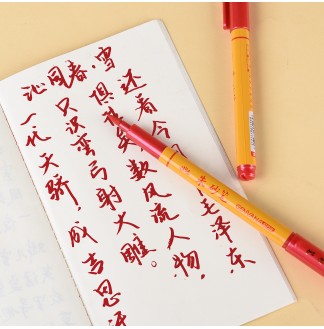 沁园春·雪
一代天骄 成吉思汗
只识弯弓射大雕。
俱往矣,数风流人物,
还看今
毛泽东